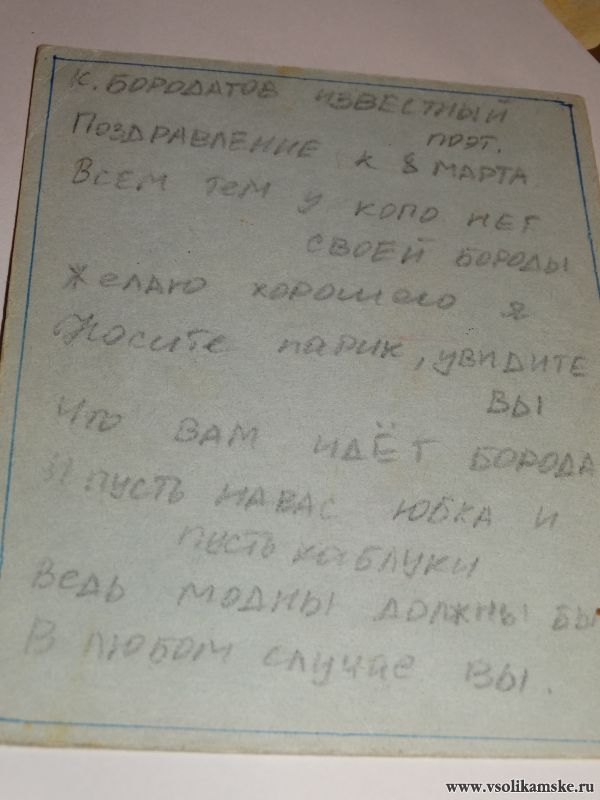 К. БОРОДАТОВ ИЗВЕСТНЫЙ
ПОЭТ.
ПОЗДРАВЛЕНИЕ К 8 МАРТА
ВСЕМ ТЕМ У КОГО НЕТ
СВОЕЙ БОРОДЫ
Желаю хорошего я
Носите парик, УВИДИТЕ
ВЫ
Что ВАМ ИДЁТ БОРОДА
И ПУСТЬ НАВАС ЮБКА И
ПУСТЬ каблуки
Ведь МОДНЫ ДОЛЖНЫ БЫ
В ЛЮБОМ случае ВЫ.
www.vsolikamske.ru